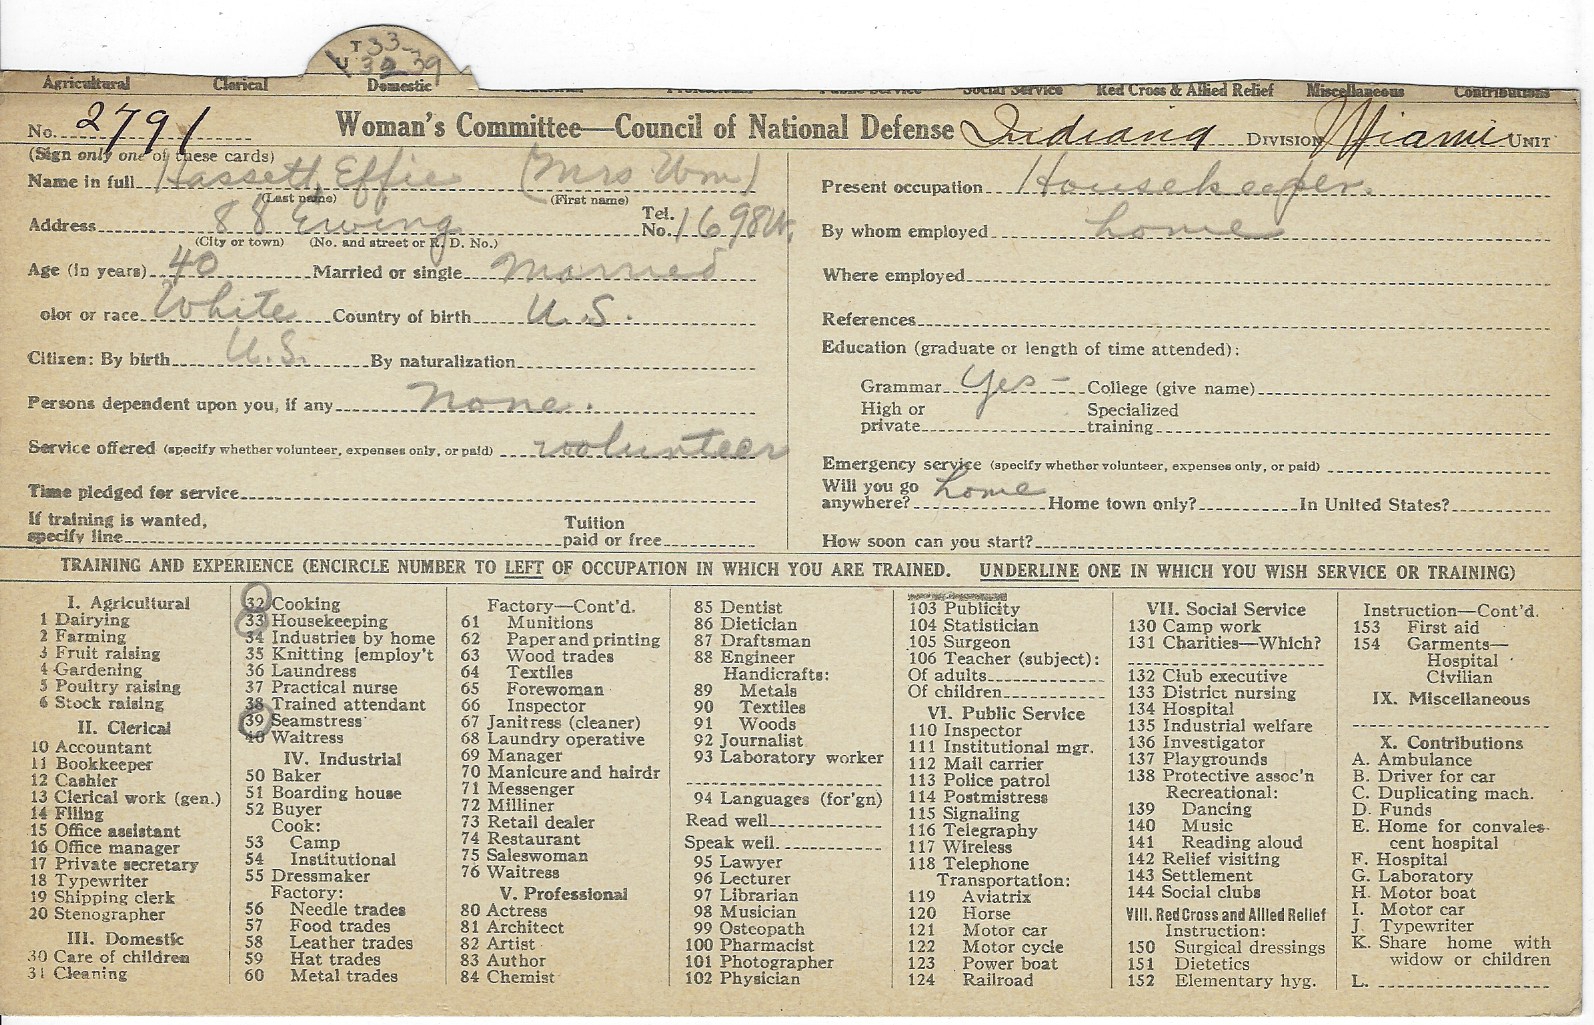 T 33-
U 32 39
Agricultural Clerical Domestic Industrial Professional Public Service Social Service Red Cross & Allied Relief Miscellaneous Contributions
No. 2791 Woman's Committee—Council of National Defense Indiana DIVISION Miami UNIT
(Sign only one of these cards)
Name in full Hassett, Effie (Mrs Wm)
(Last name) (First name)
Address 88 Ewing Tel. No. 1698W.
(City or town) (No. and street or R. D. No.)
Age (in years) 40 Married or single Married
olor or race White Country of birth U.S.
Citizen: By birth U.S. By naturalization
Persons dependent upon you, if any None.
Service offered (specify whether volunteer, expenses only, or paid) volunteer
Time pledged for service
If training is wanted, specify line Tuition paid or free
Present occupation Housekeeper.
By whom employed home
Where employed
References
Education (graduate or length of time attended):
Grammar Yes- College (give name)
High or private Specialized training
Emergency service (specify whether volunteer, expenses only, or paid)
Will you go anywhere? home Home town only? In United States?
How soon can you start?
TRAINING AND EXPERIENCE (ENCIRCLE NUMBER TO LEFT OF OCCUPATION IN WHICH YOU ARE TRAINED. UNDERLINE ONE IN WHICH YOU WISH SERVICE OR TRAINING)
I. Agricultural
1 Dairying
2 Farming
3 Fruit raising
4 Gardening
5 Poultry raising
6 Stock raising
II. Clerical
10 Accountant
11 Bookkeeper
12 Cashier
13 Clerical work (gen.)
14 Filing
15 Office assistant
16 Office manager
17 Private secretary
18 Typewriter
19 Shipping clerk
20 Stenographer
III. Domestic
30 Care of children
31 Cleaning
32 Cooking
33 Housekeeping
34 Industries by home
35 Knitting [employ't
36 Laundress
37 Practical nurse
38 Trained attendant
39 Seamstress
40 Waitress
IV. Industrial
50 Baker
51 Boarding house
52 Buyer
Cook:
53 Camp
54 Institutional
55 Dressmaker
Factory:
56 Needle trades
57 Food trades
58 Leather trades
59 Hat trades
60 Metal trades
Factory—Cont'd.
61 Munitions
62 Paper and printing
63 Wood trades
64 Textiles
65 Forewoman
66 Inspector
67 Janitress (cleaner)
68 Laundry operative
69 Manager
70 Manicure and hairdr
71 Messenger
72 Milliner
73 Retail dealer
74 Restaurant
75 Saleswoman
76 Waitress
V. Professional
80 Actress
81 Architect
82 Artist
83 Author
84 Chemist
85 Dentist
86 Dietician
87 Draftsman
88 Engineer
Handicrafts:
89 Metals
90 Textiles
91 Woods
92 Journalist
93 Laboratory worker
94 Languages (for'gn)
Read well
Speak well
95 Lawyer
96 Lecturer
97 Librarian
98 Musician
99 Osteopath
100 Pharmacist
101 Photographer
102 Physician
103 Publicity
104 Statistician
105 Surgeon
106 Teacher (subject):
Of adults
Of children
VI. Public Service
110 Inspector
111 Institutional mgr.
112 Mail carrier
113 Police patrol
114 Postmistress
115 Signaling
116 Telegraphy
117 Wireless
118 Telephone
Transportation:
119 Aviatrix
120 Horse
121 Motor car
122 Motor cycle
123 Power boat
124 Railroad
VII. Social Service
130 Camp work
131 Charities—Which?
132 Club executive
133 District nursing
134 Hospital
135 Industrial welfare
136 Investigator
137 Playgrounds
138 Protective assoc'n
Recreational:
139 Dancing
140 Music
141 Reading aloud
142 Relief visiting
143 Settlement
144 Social clubs
VIII. Red Cross and Allied Relief
Instruction:
150 Surgical dressings
151 Dietetics
152 Elementary hyg.
Instruction—Cont'd.
153 First aid
154 Garments—
Hospital
Civilian
IX. Miscellaneous
X. Contributions
A. Ambulance
B. Driver for car
C. Duplicating mach.
D. Funds
E. Home for convales-
cent hospital
F. Hospital
G. Laboratory
H. Motor boat
I. Motor car
J. Typewriter
K. Share home with
widow or children
L.